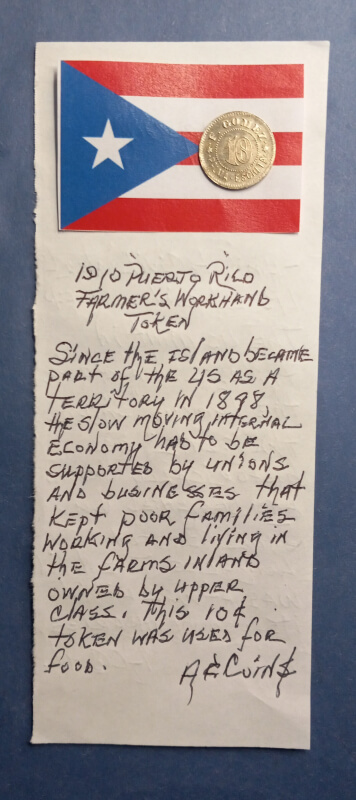 GOMEZ
10
1910 PUERTO RICO
FARMER'S WORKHAND
TOKEN
SINCE the ISLAND became
part of the US AS A
TERRITORY IN 1898,
the slow moving internal
Economy had to be
supported by unions
AND businesses that
kept poor families
working and living in
the farms inland
owned by upper
class. This 10¢
token was used for
food.